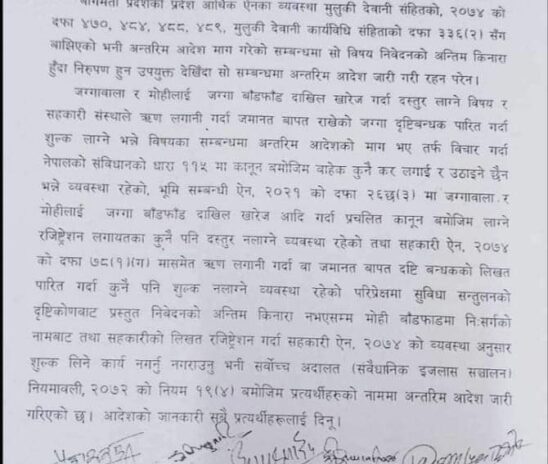 बागमती प्रदेशको प्रदेश आर्थिक ऐनका व्यवस्था मुलुकी देवानी संहितको, २०७४ को
दफा ४७०, ४८४, ४८८, ४८९, मुलुकी देवानी कार्यविधि संहिताको दफा ३३६(२) सँग
बाझिएको भनी अन्तरिम आदेश माग गरेको सम्बन्धमा सो विषय निवेदनको अन्तिम किनारा
हुँदा निरुपण हुन उपयुक्त देखिँदा सो सम्बन्धमा अन्तरिम आदेश जारी गरी रहन परेन।
जग्गावाला र मोहीलाई जग्गा बाँडफाँड दाखिल खारेज गर्दा दस्तुर लाग्ने विषय र
सहकारी संस्थाले ऋण लगानी गर्दा जमानत बापत राखेको जग्गा दृष्टिबन्धक पारित गर्दा
शुल्क लाग्ने भन्ने विषयका सम्बन्धमा अन्तरिम आदेशको माग भए तर्फ विचार गर्दा
नेपालको संविधानको धारा ११५ मा कानून बमोजिम बाहेक कुनै कर लगाई र उठाइने छैन
भन्ने व्यवस्था रहेको, भूमि सम्बन्धी ऐन, २०२१ को दफा २६छ(३) मा जग्गावाला र
मोहीलाई जग्गा बाँडफाँड दाखिल खारेज आदि गर्दा प्रचलित कानून बमोजिम लाग्ने
रजिष्ट्रेशन लगायतका कुनै पनि दस्तुर नलाग्ने व्यवस्था रहेको तथा सहकारी ऐन, २०७४
को दफा ७८(१)(ग) मासमेत ऋण लगानी गर्दा वा जमानत बापत दृष्टि बन्धकको लिखत
पारित गर्दा कुनै पनि शुल्क नलाग्ने व्यवस्था रहेको परिप्रेक्षमा सुविधा सन्तुलनको
दृष्टिकोणबाट प्रस्तुत निवेदनको अन्तिम किनारा नभएसम्म मोही बाँडफाडमा नि:सर्गको
नामबाट तथा सहकारीको लिखत रजिष्ट्रेशन गर्दा सहकारी ऐन, २०७४ को व्यवस्था अनुसार
शुल्क लिने कार्य नगर्नु नगराउनु भनी सर्वोच्च अदालत (संवैधानिक इजलास सञ्चालन)
नियमावली, २०७२ को नियम १९(४) बमोजिम प्रत्यर्थीहरुको नाममा अन्तरिम आदेश जारी
गरिएको छ। आदेशको जानकारी सबै प्रत्यर्थीहरूलाई दिनू।